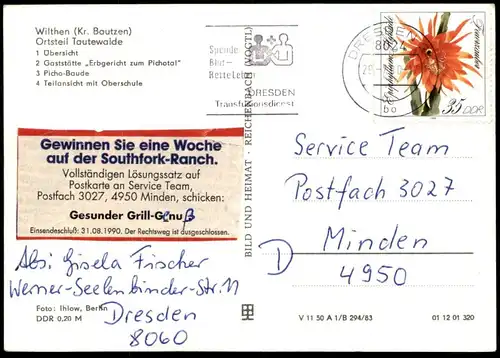 Wilthen (Kr. Bautzen)
Ortsteil Tautewalde
1 Übersicht
2 Gaststätte „Erbgericht zum Pichotal"
3 Picho-Baude
4 Teilansicht mit Oberschule
Spende
Blut-
Rette Leben
DRESDEN
Transfusionsdienst
DRESDEN
8024
bo
35 DDR
BILD UND HEIMAT · REICHENBACH (VOGTL)
Gewinnen Sie eine Woche
auf der Southfork-Ranch.
Vollständigen Lösungssatz auf
Postkarte an Service Team,
Postfach 3027, 4950 Minden, schicken:
Gesunder Grill-Genuß
Einsendeschluß: 31.08.1990. Der Rechtsweg ist ausgeschlossen.
Service Team
Postfach 3027
Minden
D 4950
Abs: Gisela Fischer
Werner-Seelenbinder-Str. 11
Dresden
8060
Foto: Ihlow, Berlin
DDR 0,20 M
V 11 50 A 1/B 294/83
01 12 01 320